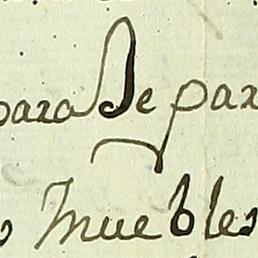 para de par
muebles